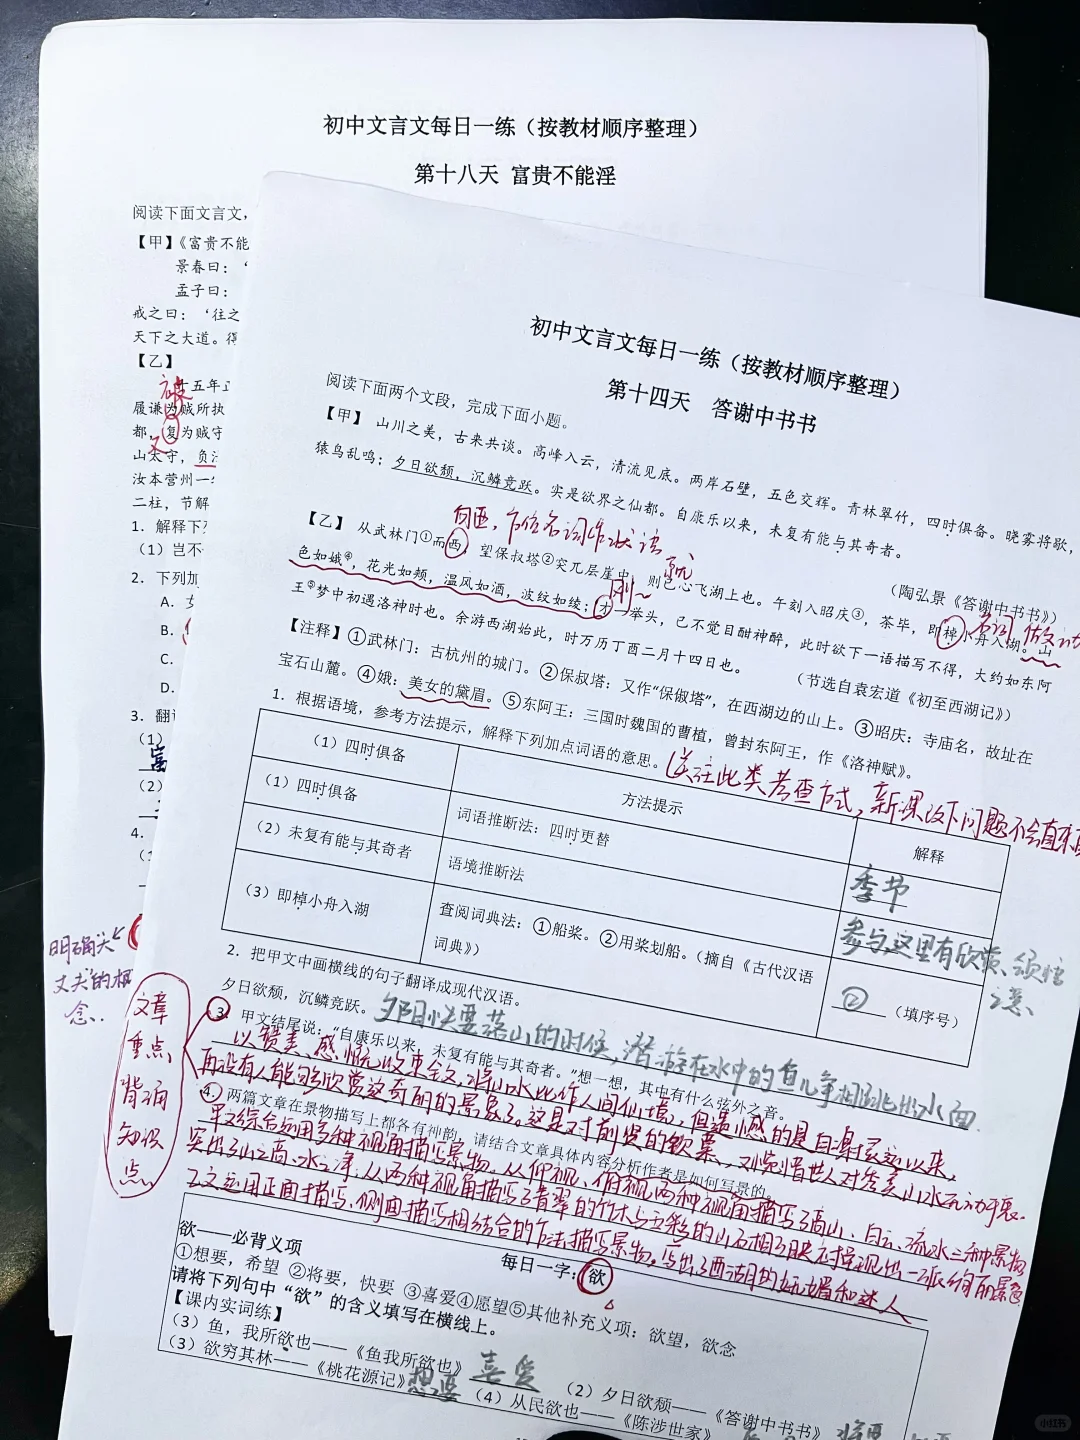 初中文言文每日一练（按教材顺序整理）
第十八天 富贵不能淫
阅读下面文言文，
【甲】《富贵不能
景春曰：‘
孟子曰：
戒之曰：‘往之
天下之大道。得
【乙】
十五年正
履谦为贼所执
都，复为贼守
山太守，负
汝本营州一
二柱，节解
1. 解释下列
（1）岂不
2. 下列加
A.
B.
C.
D.
3. 翻译
（1）
（2）
4.
明确“大
丈夫”的概
念.
初中文言文每日一练（按教材顺序整理）
第十四天 答谢中书书
阅读下面两个文段，完成下面小题。
【甲】 山川之美，古来共谈。高峰入云，清流见底。两岸石壁，五色交辉。青林翠竹，四时俱备。晓雾将歇，
猿鸟乱鸣；夕日欲颓，沉鳞竞跃。实是欲界之仙都。自康乐以来，未复有能与其奇者。
（陶弘景《答谢中书书》）
向西，方位名词作状语
【乙】 从武林门①而西，望保叔塔②突兀层崖中，则已心飞湖上也。午刻入昭庆③，茶毕，即棹小舟入湖。山
名词做动
刚
色如娥④，花光如颊，温风如酒，波纹如绫；才一举头，已不觉目酣神醉，此时欲下一语描写不得，大约如东阿
王⑤梦中初遇洛神时也。余游西湖始此，时万历丁酉二月十四日也。
（节选自袁宏道《初至西湖记》）
【注释】①武林门：古杭州的城门。②保叔塔：又作“保俶塔”，在西湖边的山上。③昭庆：寺庙名，故址在
宝石山麓。④娥：美女的黛眉。⑤东阿王：三国时魏国的曹植，曾封东阿王，作《洛神赋》。
1. 根据语境，参考方法提示，解释下列加点词语的意思。
（关注此类考查方式，新课改下问题不会直来直
（1）四时俱备 方法提示 解释
（1）四时俱备 词语推断法：四时更替 季节
（2）未复有能与其奇者 语境推断法 参与，这里有欣赏、领悟
之意
（3）即棹小舟入湖 查阅词典法：①船桨。②用桨划船。（摘自《古代汉语
词典》） ② （填序号）
2. 把甲文中画横线的句子翻译成现代汉语。
夕日欲颓，沉鳞竞跃。 夕阳快要落山的时候，潜游在水中的鱼儿争相跳出水面
3. 甲文结尾说：“自康乐以来，未复有能与其奇者。”想一想，其中有什么弦外之音。
以赞美、感慨收束全文，将山水比作人间仙境，但遗憾的是自谢灵运以来，
再没有人能够欣赏这奇丽的景象了。这是对前贤的钦慕，又惋惜世人对秀美山水无动于衷.
4. 两篇文章在景物描写上都各有神韵，请结合文章具体内容分析作者是如何写景的。
甲文综合运用多种视角描写景物。从仰视、俯视两种视角描写了高山、白云、流水三种景物
突出了山之高、水之净；从两种视角描写了青翠的竹木与五彩的山石相互映衬，呈现出一派绚丽景色
乙文运用正面描写、侧面描写相结合的方法描写景物。写出了西湖的妩媚和迷人
文章
重点
背诵
知识
点
每日一字：欲
欲——必背义项
①想要，希望 ②将要，快要 ③喜爱④愿望⑤其他补充义项：欲望，欲念
请将下列句中“欲”的含义填写在横线上。
【课内实词练】
（3）鱼，我所欲也——《鱼我所欲也》 喜爱 （2）夕日欲颓——《答谢中书书》 将要
（3）欲穷其林——《桃花源记》 想要 （4）从民欲也——《陈涉世家》
小红书